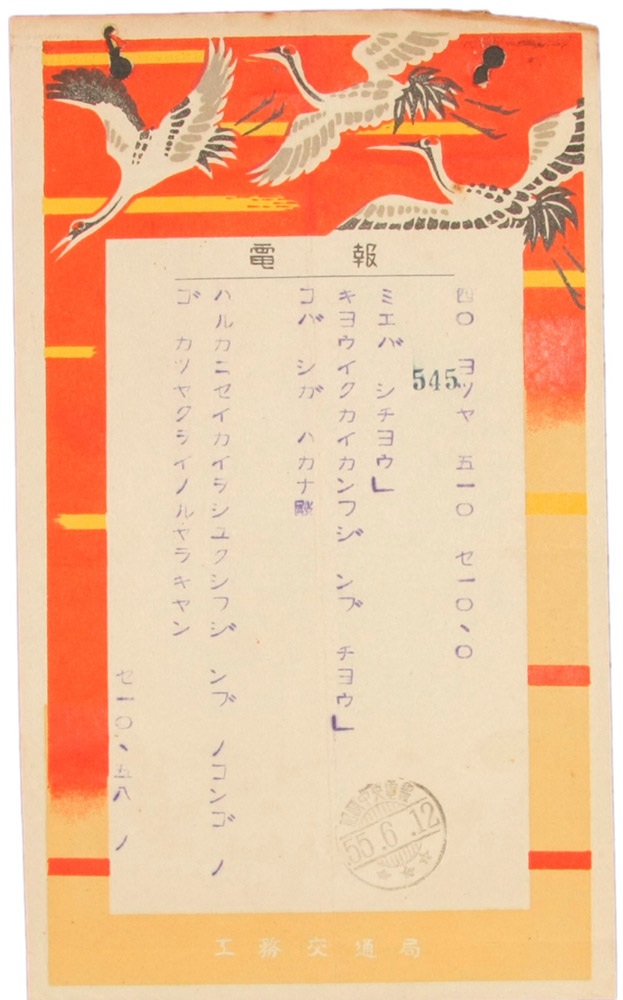 電報
四〇 ヨツヤ 五一〇 セ一〇、〇
545
ミエバ シチヨウ」
キヨウイクカイカンフジ ンブ チヨウ」
コバ シガ ハカナ
ハルカニセイカイヲシユクシフジ ンブ ノコンゴ ノ
ゴ カツヤクヲイノルヤラキヤン
セ一〇、五八 ノ
55.6.12
工務交通局